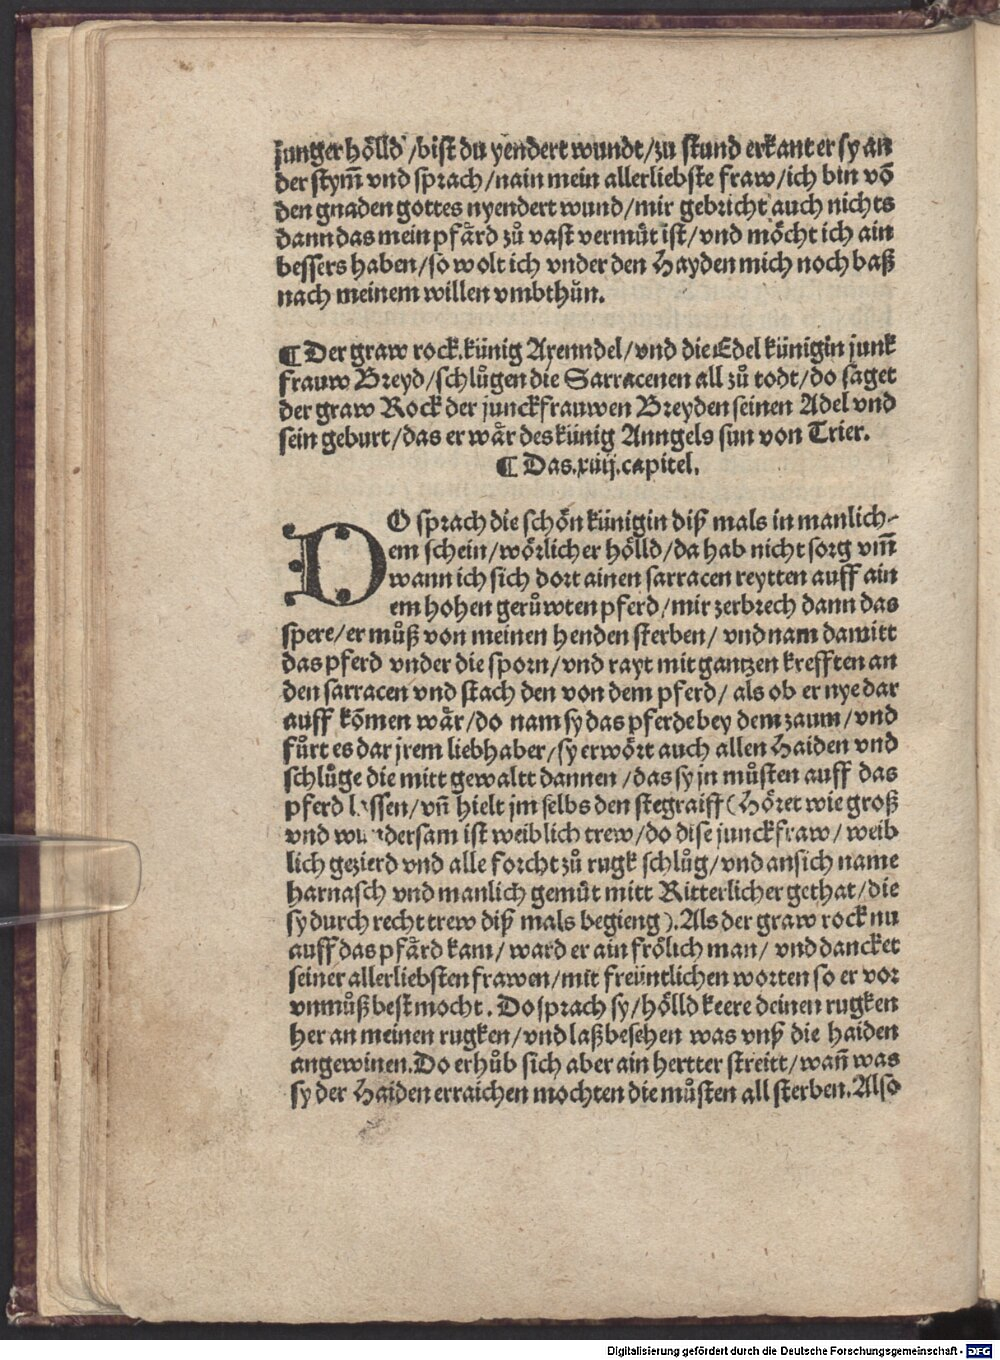 junger hoͤlld /bist du yendert wundt/zu stund erkant er sy an
der stym̄ vnd sprach/nain mein allerliebste fraw/ich bin vō
den gnaden gottes nyendert wund/mir gebricht auch nichts
dann das mein pfaͤrd zuͦ vast vermuͤt ist/vnd moͤcht ich ain
bessers haben/so wolt ich vnder den Hayden mich noch baß
nach meinem willen vmbthuͤn.
¶ Der graw rock.künig Arenndel/vnd die Edel künigin junk
frauw Breyd/schluͤgen die Sarracenen all zuͦ todt/do saget
der graw Rock der junckfrauwen Breyden seinen Adel vnd
sein geburt/das er waͤr des künig Anngels sun von Trier.
¶ Das.xiiij.capitel.
DO sprach die schoͤn künigin diß mals in manlich-
em schein/woͤrlicher hoͤlld/da hab nicht sorg vm̄
wann ich sich dort ainen sarracen reytten auff ain
em hohen geruͤwten pferd/mir zerbrech dann das
spere/er muͦß von meinen henden sterben/ vnd nam damitt
das pferd vnder die sporn/vnd rayt mit gantzen krefften an
den sarracen vnd stach den von dem pferd/ als ob er nye dar
auff kōmen waͤr/do nam sy das pferde bey dem zaum/vnd
fuͦrt es dar jrem liebhaber/sy erwoͤrt auch allen Haiden vnd
schluͦge die mitt gewaltt dannen /das sy jn muͦsten auff das
pferd lassen/vn̄ hielt jm selbs den stegraiff (Hoͤret wie groß
vnd wundersam ist weiblich trew/do dise junckfraw/ weib
lich gezierd vnd alle forcht zuͦ rugk schluͦg/vnd an sich name
harnasch vnd manlich gemuͤt mitt Ritterlicher gethat/die
sy durch recht trew diß mals begieng).Als der graw rock nu
auff das pfaͤrd kam/ ward er ain froͤlich man/ vnd dancket
seiner allerliebsten frawen/mit freüntlichen worten so er vor
vnmuͦß best mocht. Do sprach sy/hoͤlld keere deinen rugken
her an meinen rugken/vnd laß besehen was vnß die haiden
angewinen.Do erhuͦb sich aber ain hertter streitt/wan̄ was
sy der Haiden erraichen mochten die muͦsten all sterben.Also
Digitalisierung gefördert durch die Deutsche Forschungsgemeinschaft - DFG